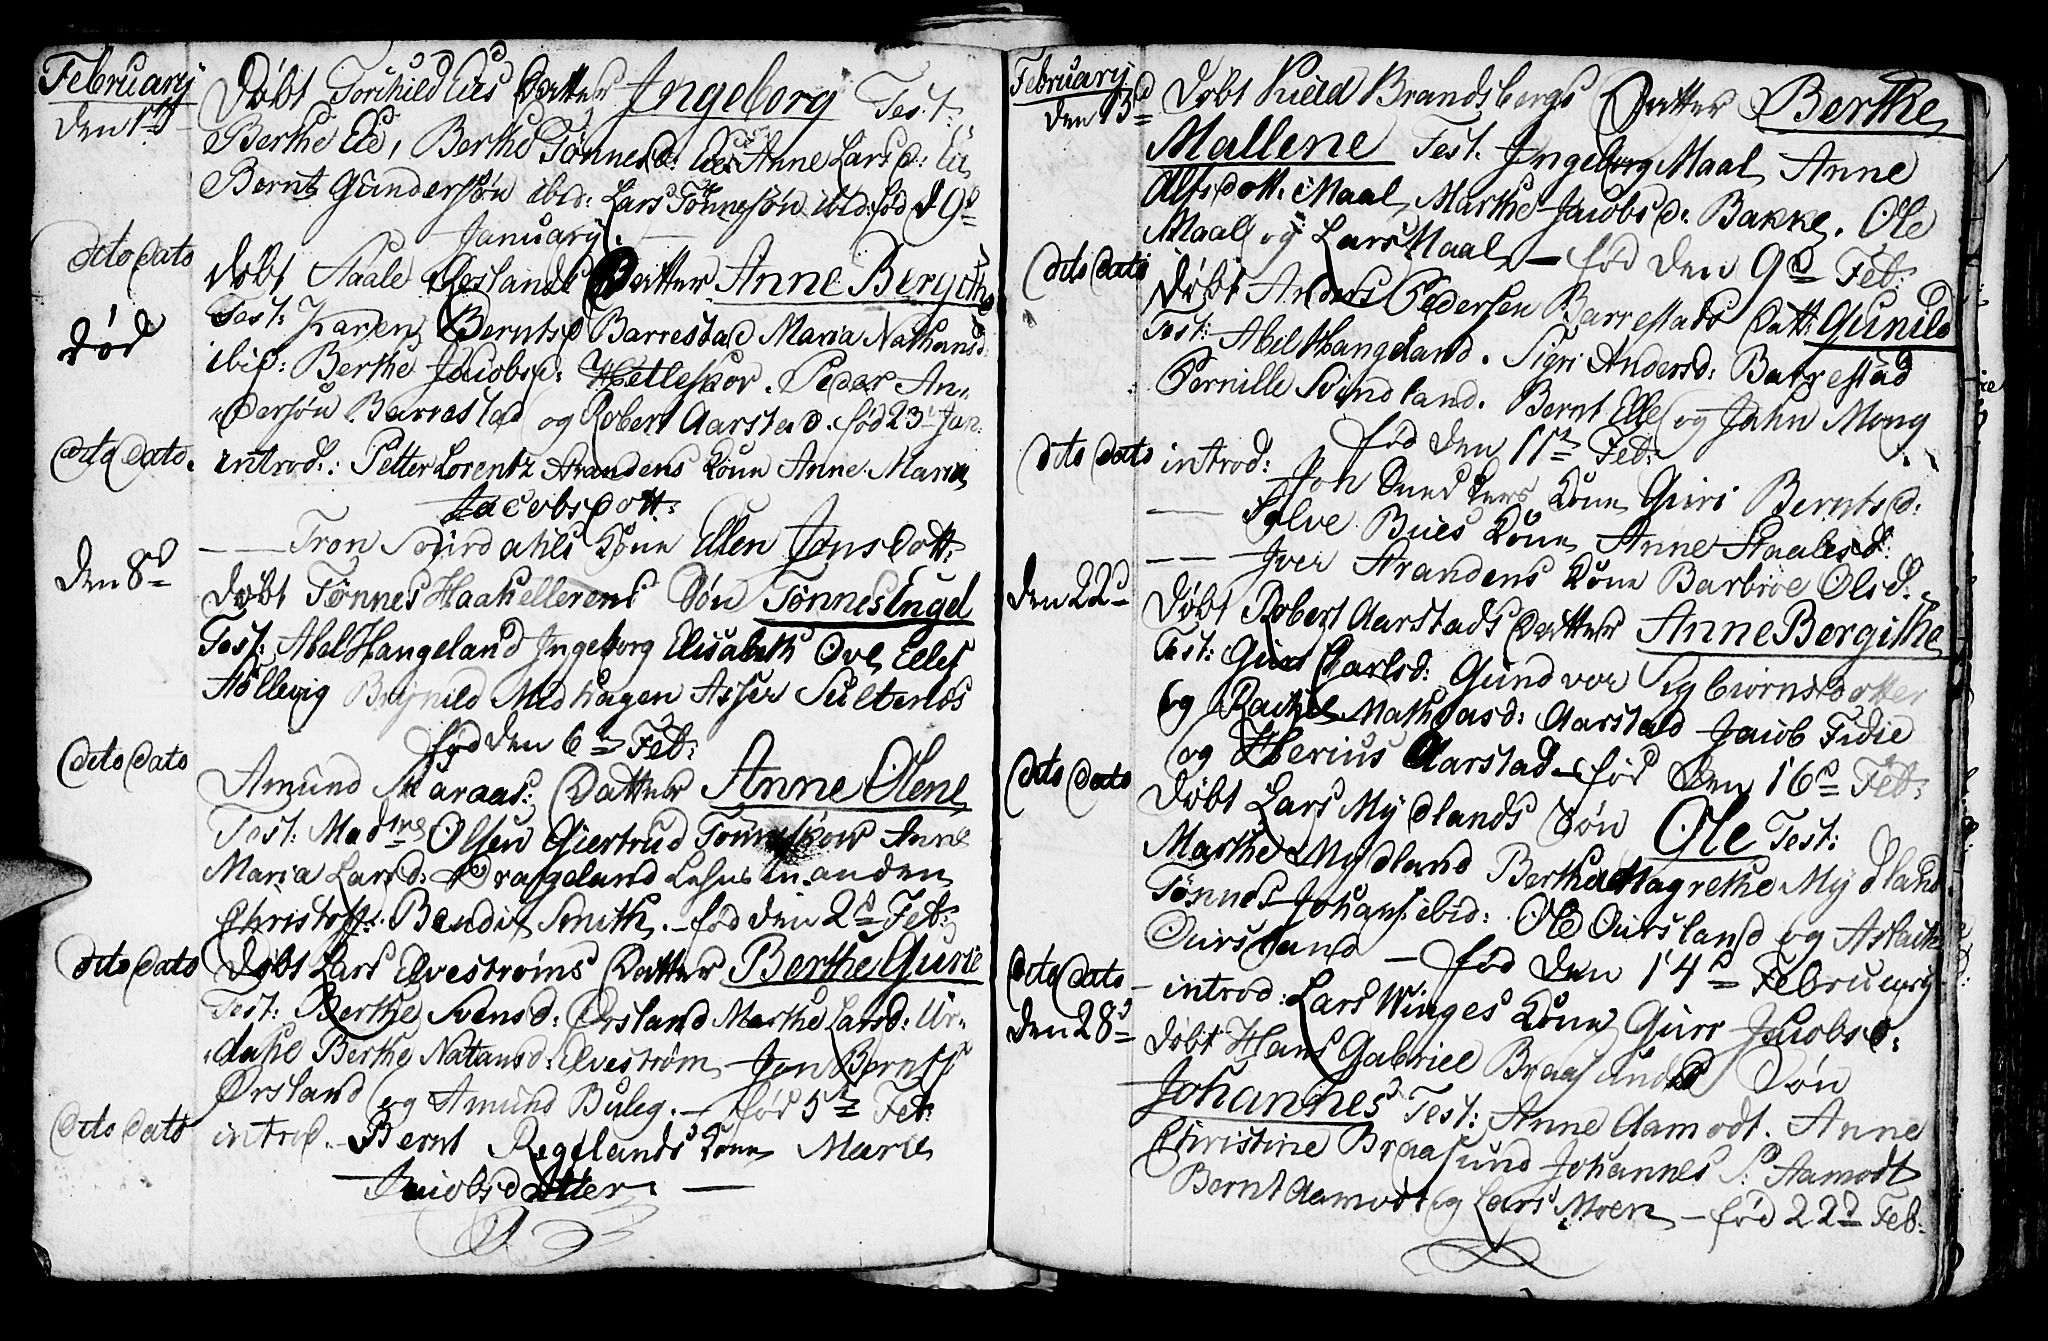 February
den 1ste Døbt Torchild Eies Datter Ingeborg Test:
Berthe Eie, Berthe Tønnesd: Eie, Anne Larsd: Eie
Bernt Gundersøn ibid: Lars Tønnesøn ibid: fød d 9d
January.
dito dato Døbt Staale Datter Anne Bergithe
død Test: Karen Berntsd Barrestad Maria Nathansd
ibid: Berthe Jacobsd: Hetleskor. Peder An-
dersøn Barrestad og Robert Aarstad. fød 23 Jan:
dito dato. introd: Petter Lorentz Strandens Kone Anne Maria
Jacobsdott:
— Tron Soirdahls Kone Ellen Jonsdott:
den 8d Døbt Tønnes Haaehellerens Søn Tønnes Engel
Test: Abel Hangeland Ingeborg Elisabeth Elles
Støllevig Brynild Midhagen Asser Sultends
fød den 6te Feb:
dito dato Amund Maraas: Datter Anne Olene
Test: Madme Olsen Giertrud Anne
Maria Larsd: Drageland anden
Christoff: Bendix Smith. — fød den 2d Feb:
dito dato Døbt Lars Elvestrøms Datter Berthe Gurie
Test: Berthe Svensd: Ørsland Marthe Larsd: Ur-
dahl Berthe Natansd: Elvestrøm Jon Bernts
Ørsland og Amund Buleg. — fød 5te Feb:
dito dato introd. Bernt Regelands Kone Marie
Jacobsdatter. —
February
den 15d Døbt Brandsbergs Datter Berthe
Mallene Test. Ingeborg Maal, Anne
Alfsdott: Maal, Marthe Jacobsd: Bakke. Ole
Maal og Lars Maal, — fød den 9d Feb:
dito dato Døbt Anders Pedersen Barrestads Datt: Gunild
Test: Abel Hangeland. Sigri Andersd: Barrestad
Pernille Svindland. Bernt Elle og Jahn Mong
fød den 11te Feb:
dito dato introd: Jon Kone Guri Berntsd:
— Salve Bues Kone Anne Staalesd:
— Iver Strandens Kone Barbroe Olsd:
den 22d Døbt Robert Aarstads Datter Anne Bergithe
Test: Guri Carlsd: Gundvor Sybiørnsdatter
og Rachel Mathiasd: Aarstad Jacob Fidie
og Aarstad — fød den 16d Feb:
dito dato Døbt Lars Mydlands Søn Ole Test:
Marthe Mydland Berthe Magrethe Mydland
Tønnes Johans: ibid: Ole Oursland og Aslach
Oursland — fød den 14d February
dito dato — introd: Lars Winges Kone Guri Jacobsd:
den 28d Døbt Hans Gabriel Braasunds Søn
Johannes Test: Anne Aamodt. Anne
Christine Braasund Johannes S: Aamodt
Bernt Aamodt og Lars Moen — fød 22d Feb: